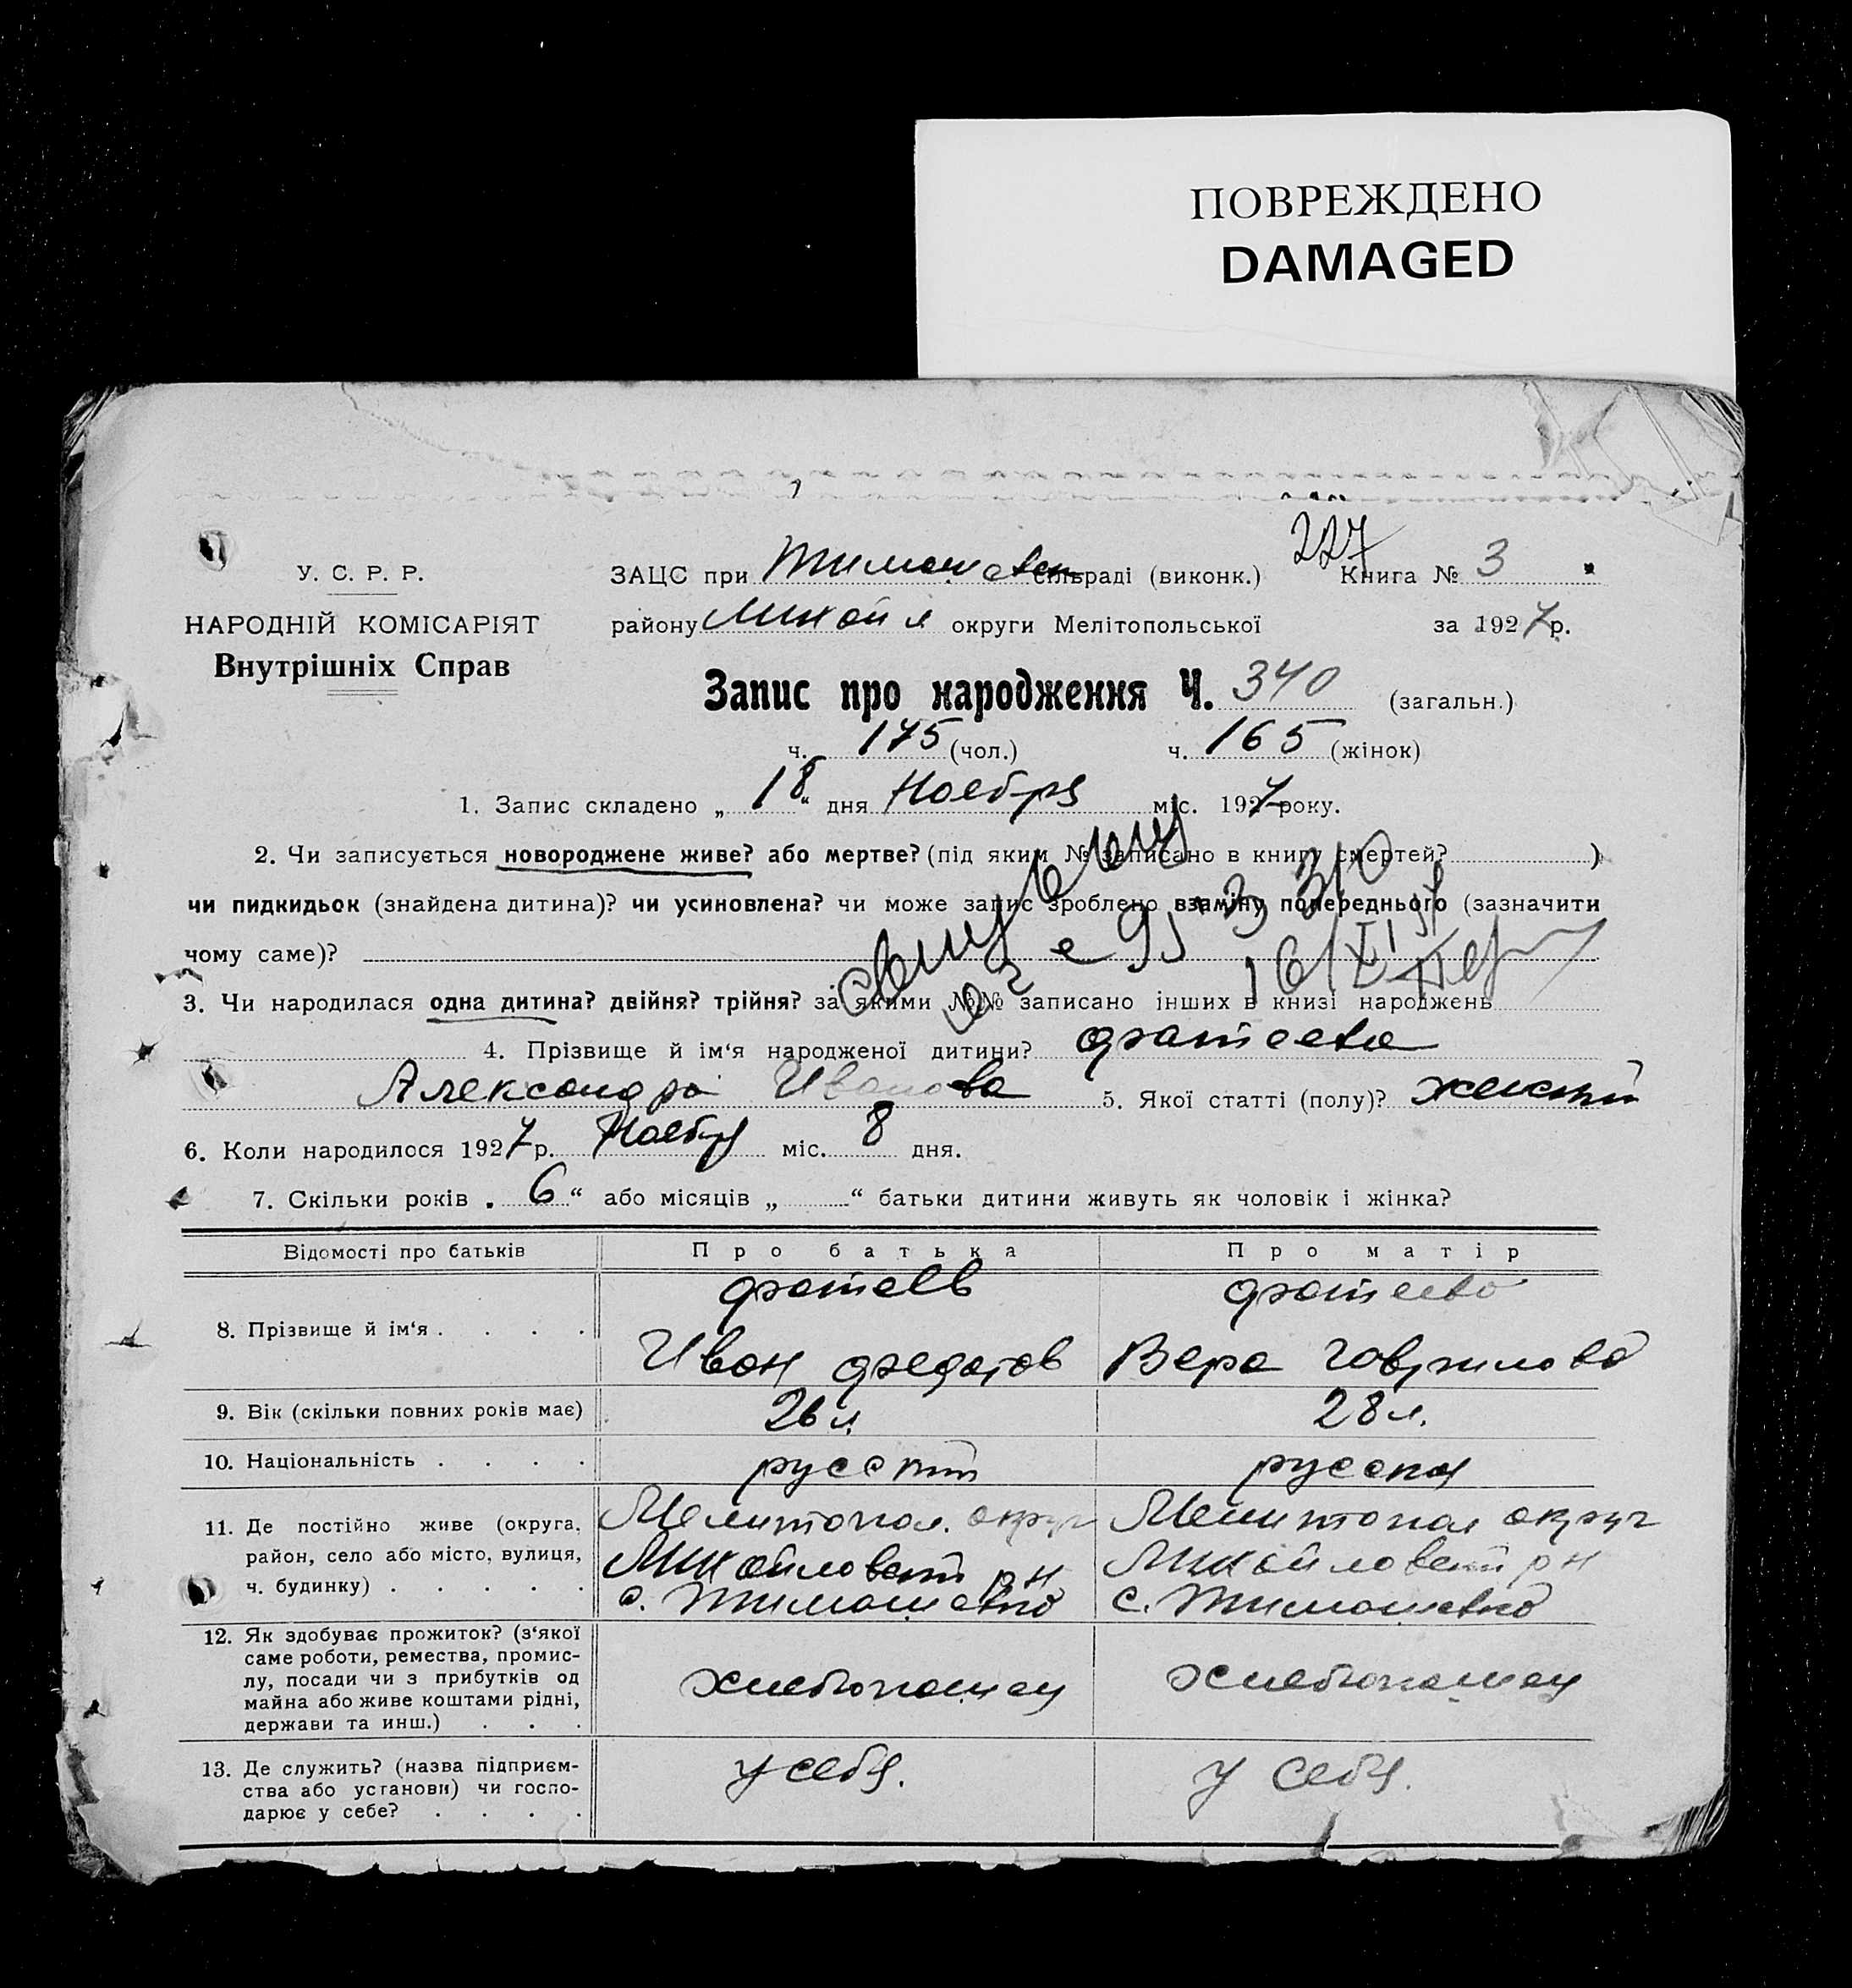 ПОВРЕЖДЕНО
DAMAGED
227
У. С. Р. Р.
ЗАЦС при Тимошевск сільраді (виконк.) Книга № 3
НАРОДНІЙ КОМІСАРІЯТ
району Михайл округи Мелітопольської за 1927 р.
Внутрішніх Справ
Запис про народження Ч. 340 (загальн.)
ч. 175 (чол.) ч. 165 (жінок)
1. Запис складено „ 18 “ дня Ноября міс. 1927 року.
2. Чи записується новороджене живе? або мертве? (під яким № записано в книгу смертей? )
чи пидкидьок (знайдена дитина)? чи усиновлена? чи може запис зроблено взаміну попереднього (зазначити
чому саме)?
3. Чи народилася одна дитина? двійня? трійня? за якими №№ записано інших в книзі народжень
4. Прізвище й ім‘я народженої дитини? Фатеева
Александра Иванова 5. Якої статті (полу)? женский
6. Коли народилося 1927 р. Ноябр міс. 8 дня.
7. Скільки років „ 6 “ або місяців „ “ батьки дитини живуть як чоловік і жінка?
Відомості про батьків Про батька Про матір
Фатеев Фатеева
8. Прізвище й ім‘я . . . .
Иван Федотов Вера Гаврилова
9. Вік (скільки повних років має) 26 л. 28 л.
10. Національність . . . . русский русская
11. Де постійно живе (округа, Мелитопол. округ Мелитопол округ
район, село або місто, вулиця, Михайловский рн Михайловский рн
ч. будинку) . . . . . с. Тимошевка с. Тимошевка
12. Як здобуває прожиток? (з‘якої
саме роботи, ремества, промис-
лу, посади чи з прибутків од хлебопашец хлебопашец
майна або живе коштами рідні,
держави та инш.) . . .
13. Де служить? (назва підприєм- у себя. у себя.
ства або установи) чи госпо-
дарює у себе? . . . .